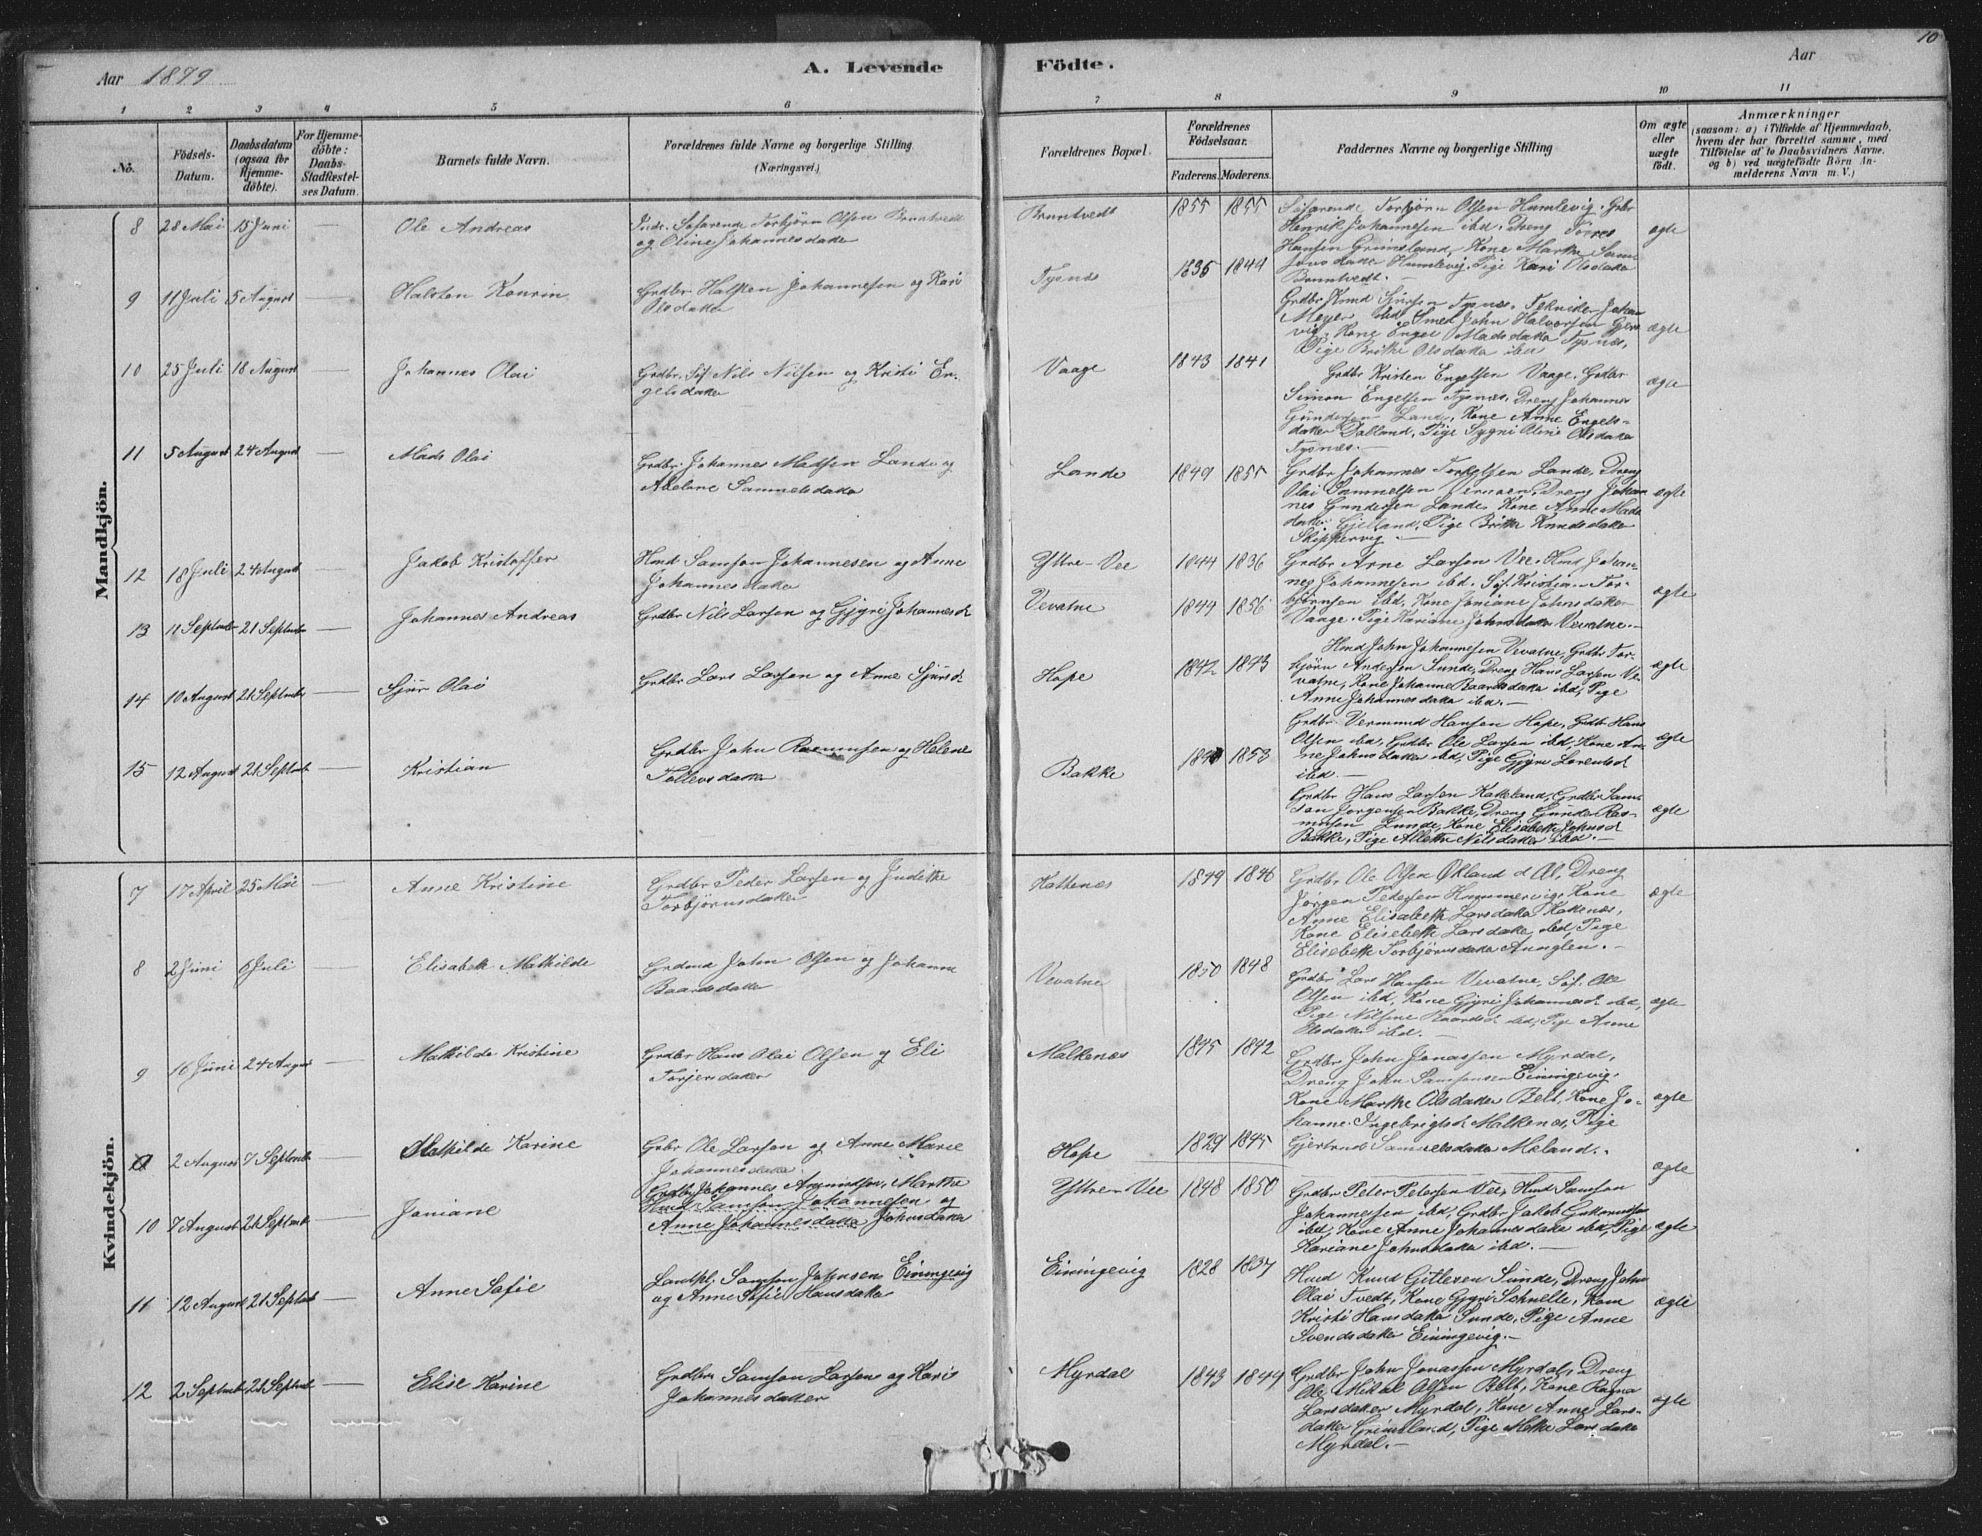 Aar 1879
A. Levende Födte.
Aar
10
1 2 3 4 5 6 7 8 9 10 11
No.
Födsels-Datum.
Daabsdatum (ogsaa for Hjemmedöbte).
For Hjemmedöbte: Daabs-Stadfestelses Datum.
Barnets fulde Navn.
Forældrenes fulde Navne og borgerlige Stilling (Næringsvei.)
Forældrenes Bopæl.
Forældrenes Födselsaar.
Faderens. Moderens.
Faddernes Navne og borgerlige Stilling
Om ægte eller uægte födt.
Anmærkninger
(saasom: a) i Tilfælde af Hjemmedaab, hvem der har forrettet samme, med Tilföielse af to Daabsvidners Navne. og b) ved uægtefödte Börn Anmelderens Navn m. V.)
Mandkjön.
8 28 Mai 15 Juni — Ole Andreas
Söfarende Torbjörn Olsen Bruntvedt
og Oline Johannesdatter
Bruntvedt 1855 1855
Söfarende Torbjörn Olsen Humlevig. Grbr
Henrik Johannesen ibd. Dreng Torres
Hansen Grimsland, Kone Marthe Sam-
sonsdatter Humlevig. Pige Kari Olsdatter
Bruntvedt. —
ægte
9 11 Juli 5 August — Halsten Konrin
Grdbr Halsten Johannesen og Kari
Olsdatter
Tysnes 1835 1844
Grdbr Knud Sjursen Tysnes. Tekniker Johan
Meyer ibd Smed John Halvorsen Gjer-
vig. Kone Engel Madsdatter Tysnes,
Pige Brithe Olsdatter ibd
ægte
10 25 Juli 18 August — Johannes Olai
Grdbr. Söf Nils Nilsen og Kristi En-
gelsdatter
Vaage 1843 1841
Grdbr Kristen Engelsen Vaage. Grdbr
Simon Engelsen Tysnes, Dreng Johannes
Gundersen Lande, Kone Anne Engels-
datter Dalland, Pige Sygni Oline Olsdatter
Tysnes. —
ægte
11 5 August 24 August — Mads Olai
Grdbr. Johannes Madsen Lande og
Abelone Samuelsdatter
Lande 1849 1855
Grdbr Johannes Torkelsen Lande, Dreng
Olai Samuelsen Dreng Johan
nes Gundersen Lande Kone Anne Mads
datter Gjelland, Pige Brithe Knudsdatter
Skippervig —
ægte
12 18 Juli 24 August — Jakob Kristoffer
Hmd Samson Johannesen og Anne
Johannesdatter
Yttre-Vee 1844 1836
Grdbr Arne Larsen Vee. Hmd Johan-
nes Johannesen ibd. Söf. Kristian Tor-
björnsen ibd, Kone Joniane Johnsdatter
Vaage. Pige Kariane Johnsdatter Vevatne.—
ægte
13 11 Septmbr 21 Septmbr — Johannes Andreas
Grdbr Nils Larsen og Gjyri Johannesd
Vevatne 1844 1856
Hmd John Johannesen Vevatne, Grdbr Tor-
björn Andersen Sunde, Dreng Hans Larsen Ve-
vatne, Kone Johanne Baardsdatter ibd, Pige
Anne Johannesdatter ibd. —
ægte
14 10 August 21 Septmbr Sjur Olai
Grdbr Lars Larsen og Anne Sjursd
Hope 1842 1843
Grdbr. Vermund Hansen Hope, Grdbr Hans
Olsen ibd, Grdbr Ole Larsen ibd, Kone An-
ne Johnsdatter ibd, Pige Gjyri Lorentsd
ibd. —
ægte
15 12 August 21 Septmbr — Kristian
Grdbr John Rasmussen og Helene
Tollevsdatter
Bakke 1853
Grdbr Hans Larsen Kakeland, Grdbr Sam-
son Jørgensen Bakke, Dreng Gunder Ras-
mussen Sunde, Kone Elisabeth Johnsd
Bakke, Pige Alethe Nilsdatter ibd. —
ægte
Kvindekjön.
7 17 April 25 Mai — Anne Kristine
Grdbr Peder Larsen og Judithe
Torbjørnsdatter
Kattenes 1849 1846
Grdbr Ole Olsen Økland d Al, Dreng
Jørgen Pedersen Hummervig, Kone
Anne Elisabeth Larsdatter Kakenes,
Kone Elisebeth Larsdatter ibd, Pige
Elisebeth Torbjørnsdatter Aunglen. —
ægte
8 2 Juni 6 Juli — Elisabeth Mathilde
Grdmd John Olsen og Johanne
Baardsdatter
Vevatne 1850 1848
Grdbr Lars Hansen Vevatne, Söf. Ole
Olsen ibd, Kone Gjyri Johannesd ibd,
Pige Nilsine Baardsd ibd, Pige Anne
Olsdatter ibd. —
ægte
9 16 Juni 24 August — Mathilde Kristine
Grdbr Hans Olai Olsen og Eli
Torjersdatter
Malkenes 1845 1842
Grdbr John Jonassen Myrdal,
Dreng John Samsonsen Einingevig.
Kone Marthe Olsdatter Belt, Kone Jo-
hanne Ingebrigtsd Malkenes, Pige
Gjertrud Samuelsdatter Meland. —
ægte
a 2 August 7 Septmbr — Mathilde Karine
Grbr Ole Larsen og Anne Marie
Johannesdatter
Hope 1829 1845
ægte
10 7 August 21 Septmbr — Joniane
Grdbr Johannes Amundsen, Marthe
Hmd Samson Johannesen og
Anne Johannesdatter Johnsdatter
Yttre-Vee 1848 1850
Grdbr Peter Petersen Vee, Hmd Samson
Johannessen ibd, Grdbr Jakob Gutormsen
ibd, Kone Anne Johannesdatter ibd, Pige
Kariane Johnsdatter ibd. —
ægte
11 12 August 21 Septmbr — Anne Sofie
Landpl. Samson Johnsen Einingevig
og Anne Sofie Hansdatter
Einingevig 1828 1837
Hmd Knud Gitlesen Sunde, Dreng John
Olai Tvedt, Kone Gjyri Schnelle, Kone
Kristi Hansdatter Sunde, Pige Anne
Svendsdatter Einingevig. —
ægte
12 2 Septmbr 21 Septmbr — Elise Karine
Grdbr Samson Larsen og Kari
Johannesdatter
Myrdal 1843 1844
Grdbr John Jonassen Myrdal, Dreng
Ole Mikal Olsen Belt, Kone Ragna
Larsdatter Myrdal, Kone Anne Lars-
datter Grimsland, Pige Methe Larsdatter
Myrdal. —
ægte